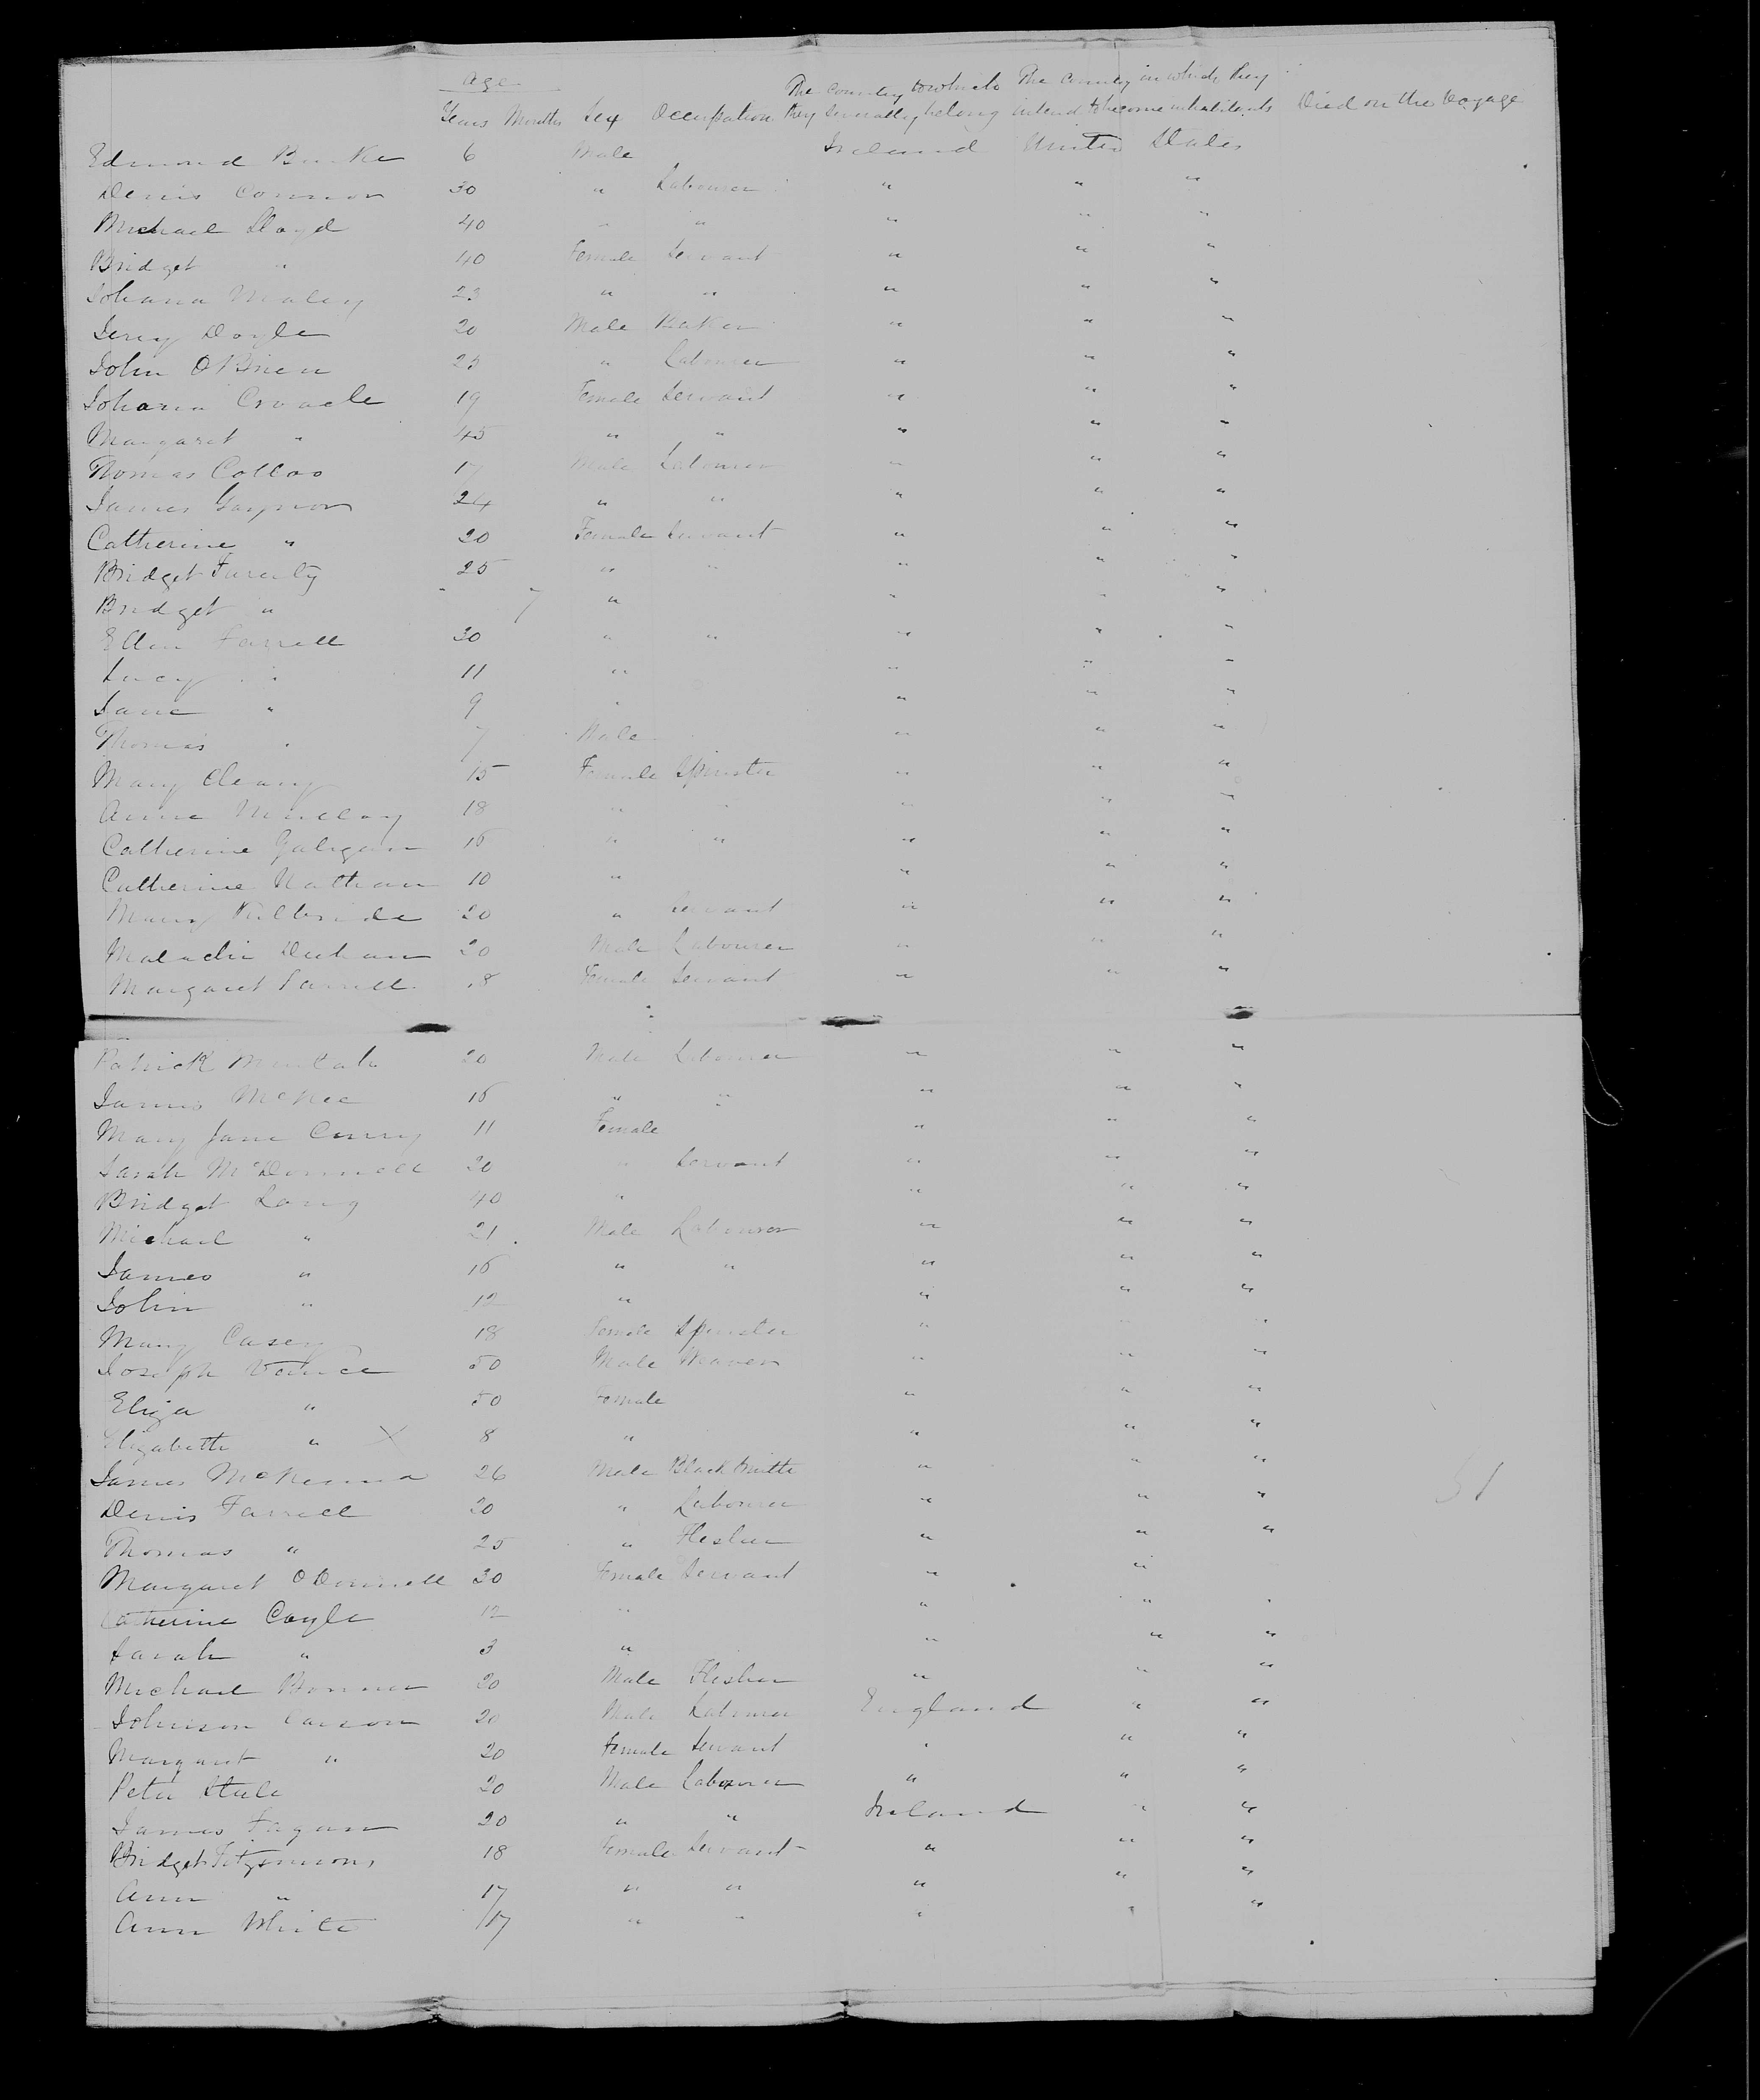 Age
The country to which The country in which they
Years Months Sex Occupation they severally belong intend to become inhabitants Died on the Voyage
Edmond Burke 6 Male Ireland United States
Denis Connor 30 " Labourer " " "
Michael Lloyd 40 " " " " "
Bridget " 40 Female Servant " " "
Johana 23 " " " " "
Jerry Doyle 20 Male Baker " " "
John OBrien 25 " Labourer " " "
Johana Croacle 19 Female Servant " " "
Margaret " 45 " " " " "
Thomas Collas 17 Male Labourer " " "
James Gaynor 24 " " " " "
Catherine " 20 Female Servant " " "
Bridget 25 " " " " "
Bridget " - 7 " " " "
Ellen Farrell 30 " " " " "
Lucy " 11 " " " "
Jane " 9 " " " "
Thomas " 7 Male " " "
Mary Cleary 15 Female Spinster " " "
Anne 18 " " " " "
Catherine Galigan 16 " " " " "
Catherine Nathan 10 " " " "
Mary Killbride 20 " Servant " " "
Malachi 20 Male Labourer " " "
Margaret Farrell 18 Female Servant " " "
Patrick 20 Male Labourer " " "
James McKee 16 " " " " "
Mary Jane Curry 11 Female " " "
Sarah McDonnell 20 " Servant " " "
Bridget Lang 40 " " " "
Michael " 21 Male Labourer " " "
James " 16 " " " " "
John " 12 " " " "
Mary Casey 18 Female Spinster " " "
Joseph Vance 50 Male Weaver " " "
Eliza " 50 Female " " "
Elizabeth " X 8 " " " "
James McKenna 26 Male Black Smith " " "
Denis Farrell 20 " Labourer " " "
Thomas " 25 " Flesher " " "
Margaret ODonnell 30 Female Servant " "
Catherine Coyle 12 " " " "
Sarah " 3 " " " "
Michael Bonner 20 Male Flesher " " "
Johnson Carson 20 Male Labourer England " "
Margaret " 20 Female Servant " " "
Peter Steele 20 Male Labourer " " "
James Fagan 20 " " Ireland " "
Bridget Fitzsimons 18 Female Servant " " "
Ann " 17 " " " " "
Ann White 17 " " " " "